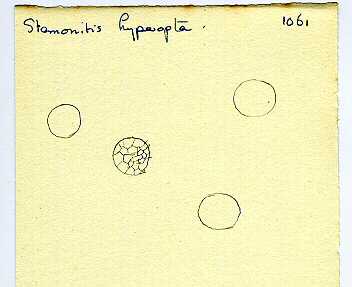 Stemonitis hyperopta. 1061